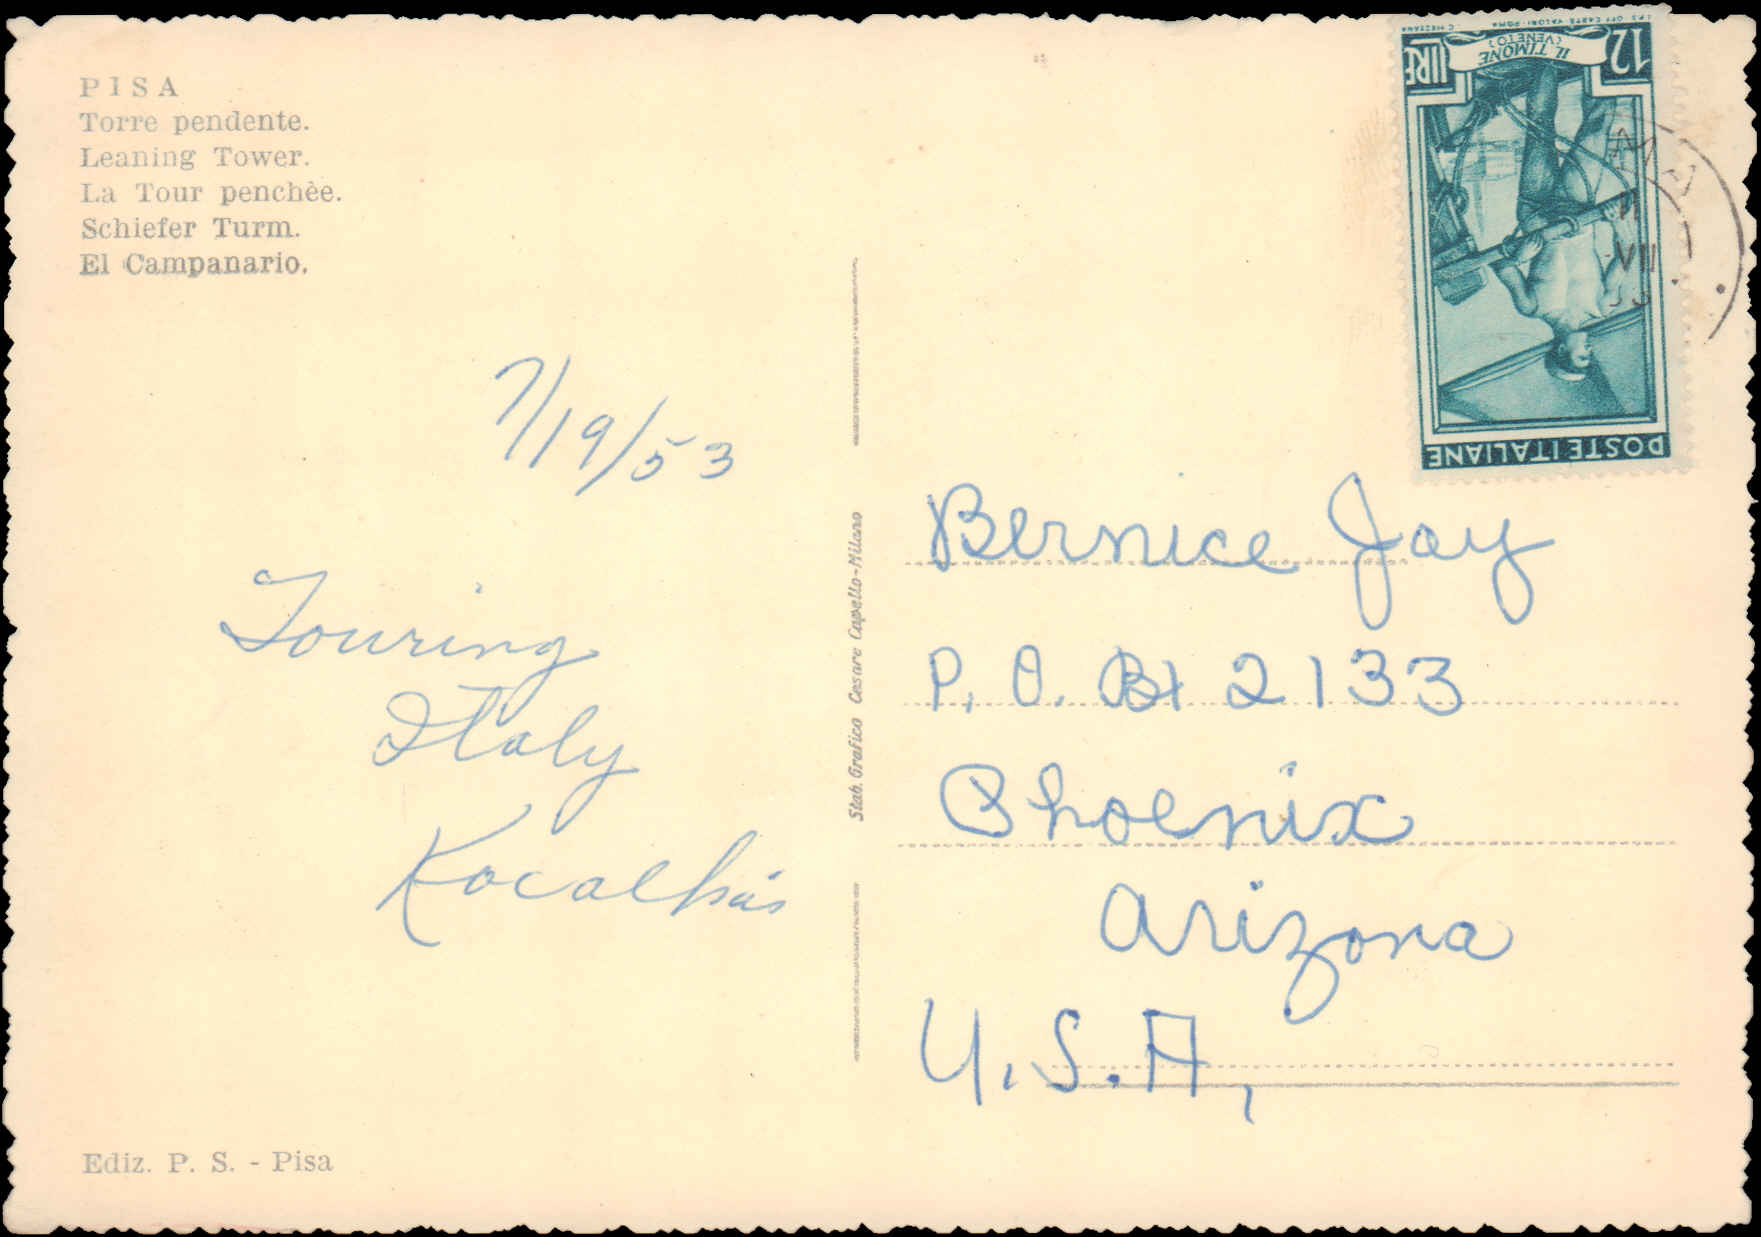 PISA
Torre pendente.
Leaning Tower.
La Tour penchèe.
Schiefer Turm.
El Campanario.
7/19/53
Touring
Italy
Stab. Grafico Cesare Capello-Milano
12 LIRE
IL TIMONE
(VENETO)
POSTE ITALIANE
VII
Bernice Jay
P. O. Bx 2133
Phoenix
Arizona
U.S.A,
Ediz. P. S. - Pisa